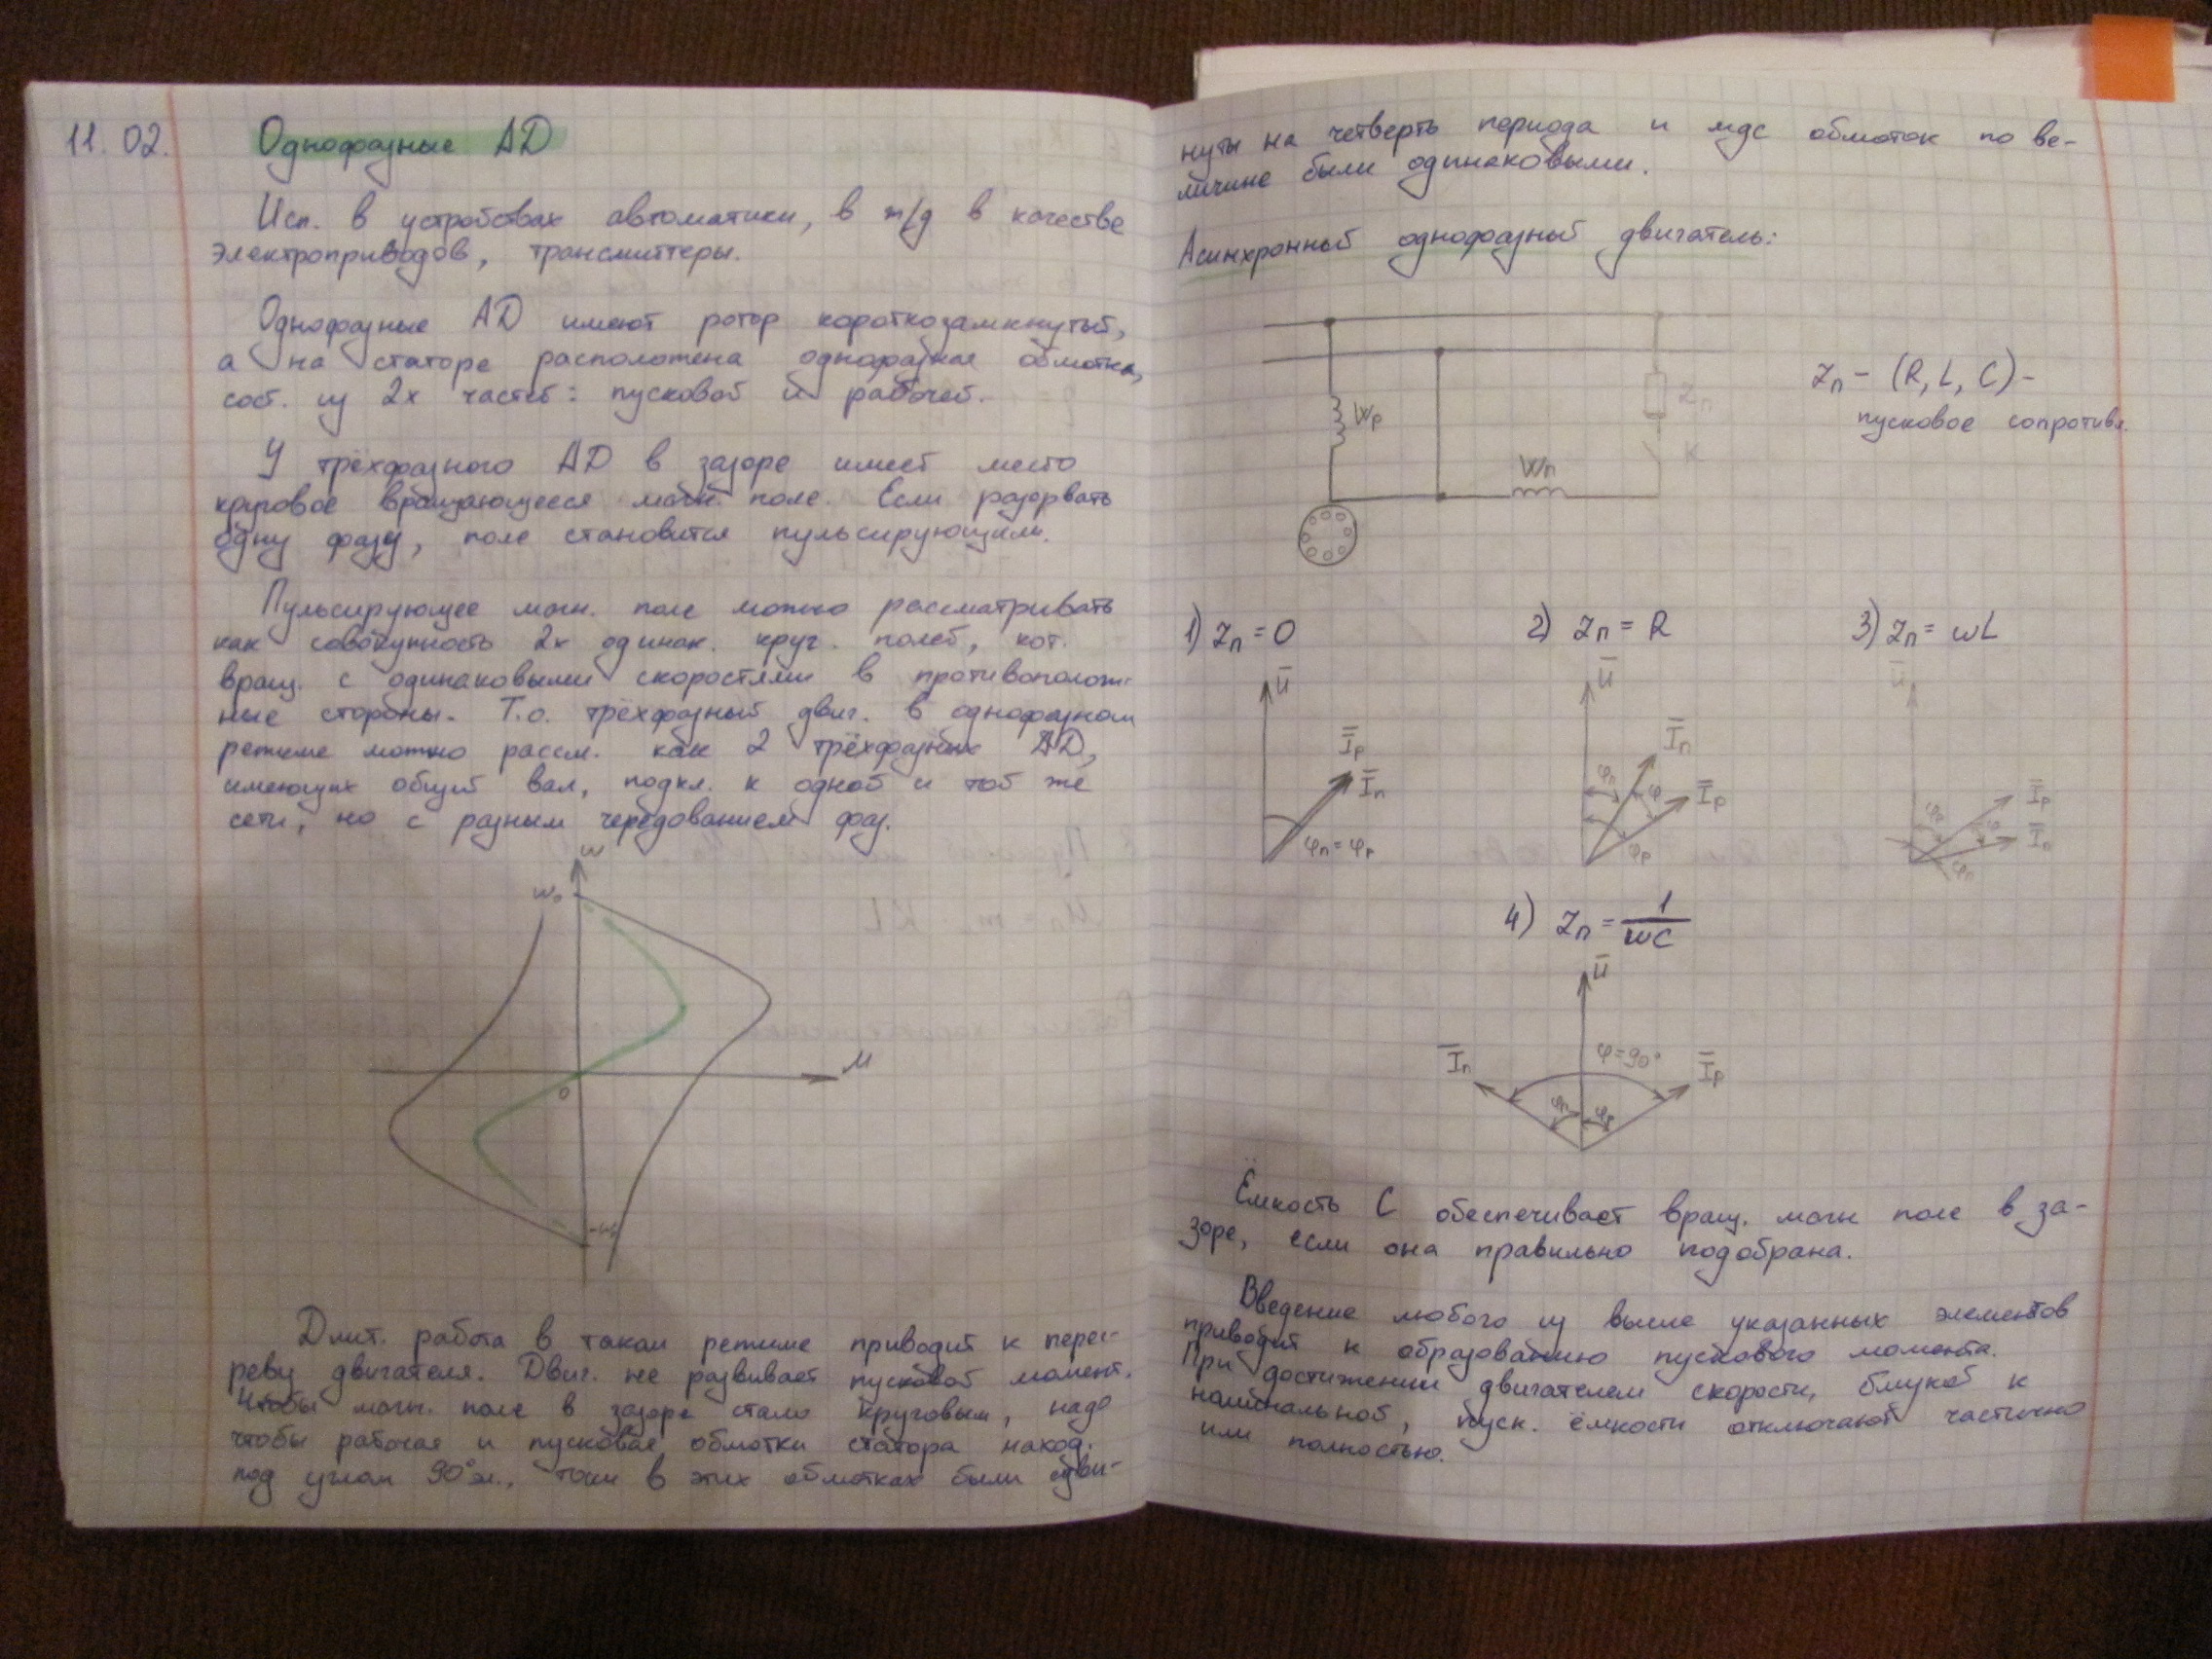 11.02.
Однофазные АД
Исп. в устройствах автоматики, в ж/д в качестве
электроприводов, трансмиттеры.
Однофазные АД имеют ротор короткозамкнутый,
а на статоре расположена однофазная обмотка,
сост. из 2х частей: пусковой и рабочей.
У трёхфазного АД в зазоре имеет место
круговое вращающееся магн. поле. Если разорвать
одну фазу, поле становится пульсирующим.
Пульсирующее магн. поле можно рассматривать
как совокупность 2х одинак. круг. полей, кот.
вращ. с одинаковыми скоростями в противополож-
ные стороны. Т.о. трёхфазный двиг. в однофазном
режиме можно рассм. как 2 трёхфазных АД,
имеющих общий вал, подкл. к одной и той же
сети, но с разным чередованием фаз.
ω
ω₀
M
0
-ω₀
Длит. работа в таком режиме приводит к перег-
реву двигателя. Двиг. не развивает пусковой момент.
Чтобы магн. поле в зазоре стало круговым, надо
чтобы рабочая и пусковая обмотки статора наход.
под углом 90° эл., токи в этих обмотках были сдви-
нуты на четверть периода и мдс обмоток по ве-
личине были одинаковыми.
Асинхронный однофазный двигатель:
Wр
Wп
Zп
K
Zп - (R, L, C) -
пусковое сопротивл.
1) Zп = 0
U̅
I̅р
I̅п
φп = φр
2) Zп = R
U̅
I̅п
I̅р
φп
φ
φр
3) Zп = ωL
U̅
I̅р
I̅п
φр
φ
φп
4) Zп = 1/ωC
U̅
I̅п
φ=90°
I̅р
φп
φр
Ёмкость С обеспечивает вращ. магн поле в за-
зоре, если она правильно подобрана.
Введение любого из выше указанных элементов
приводит к образованию пускового момента.
При достижении двигателем скорости, близкой к
номинальной, пуск. ёмкости отключают частично
или полностью.